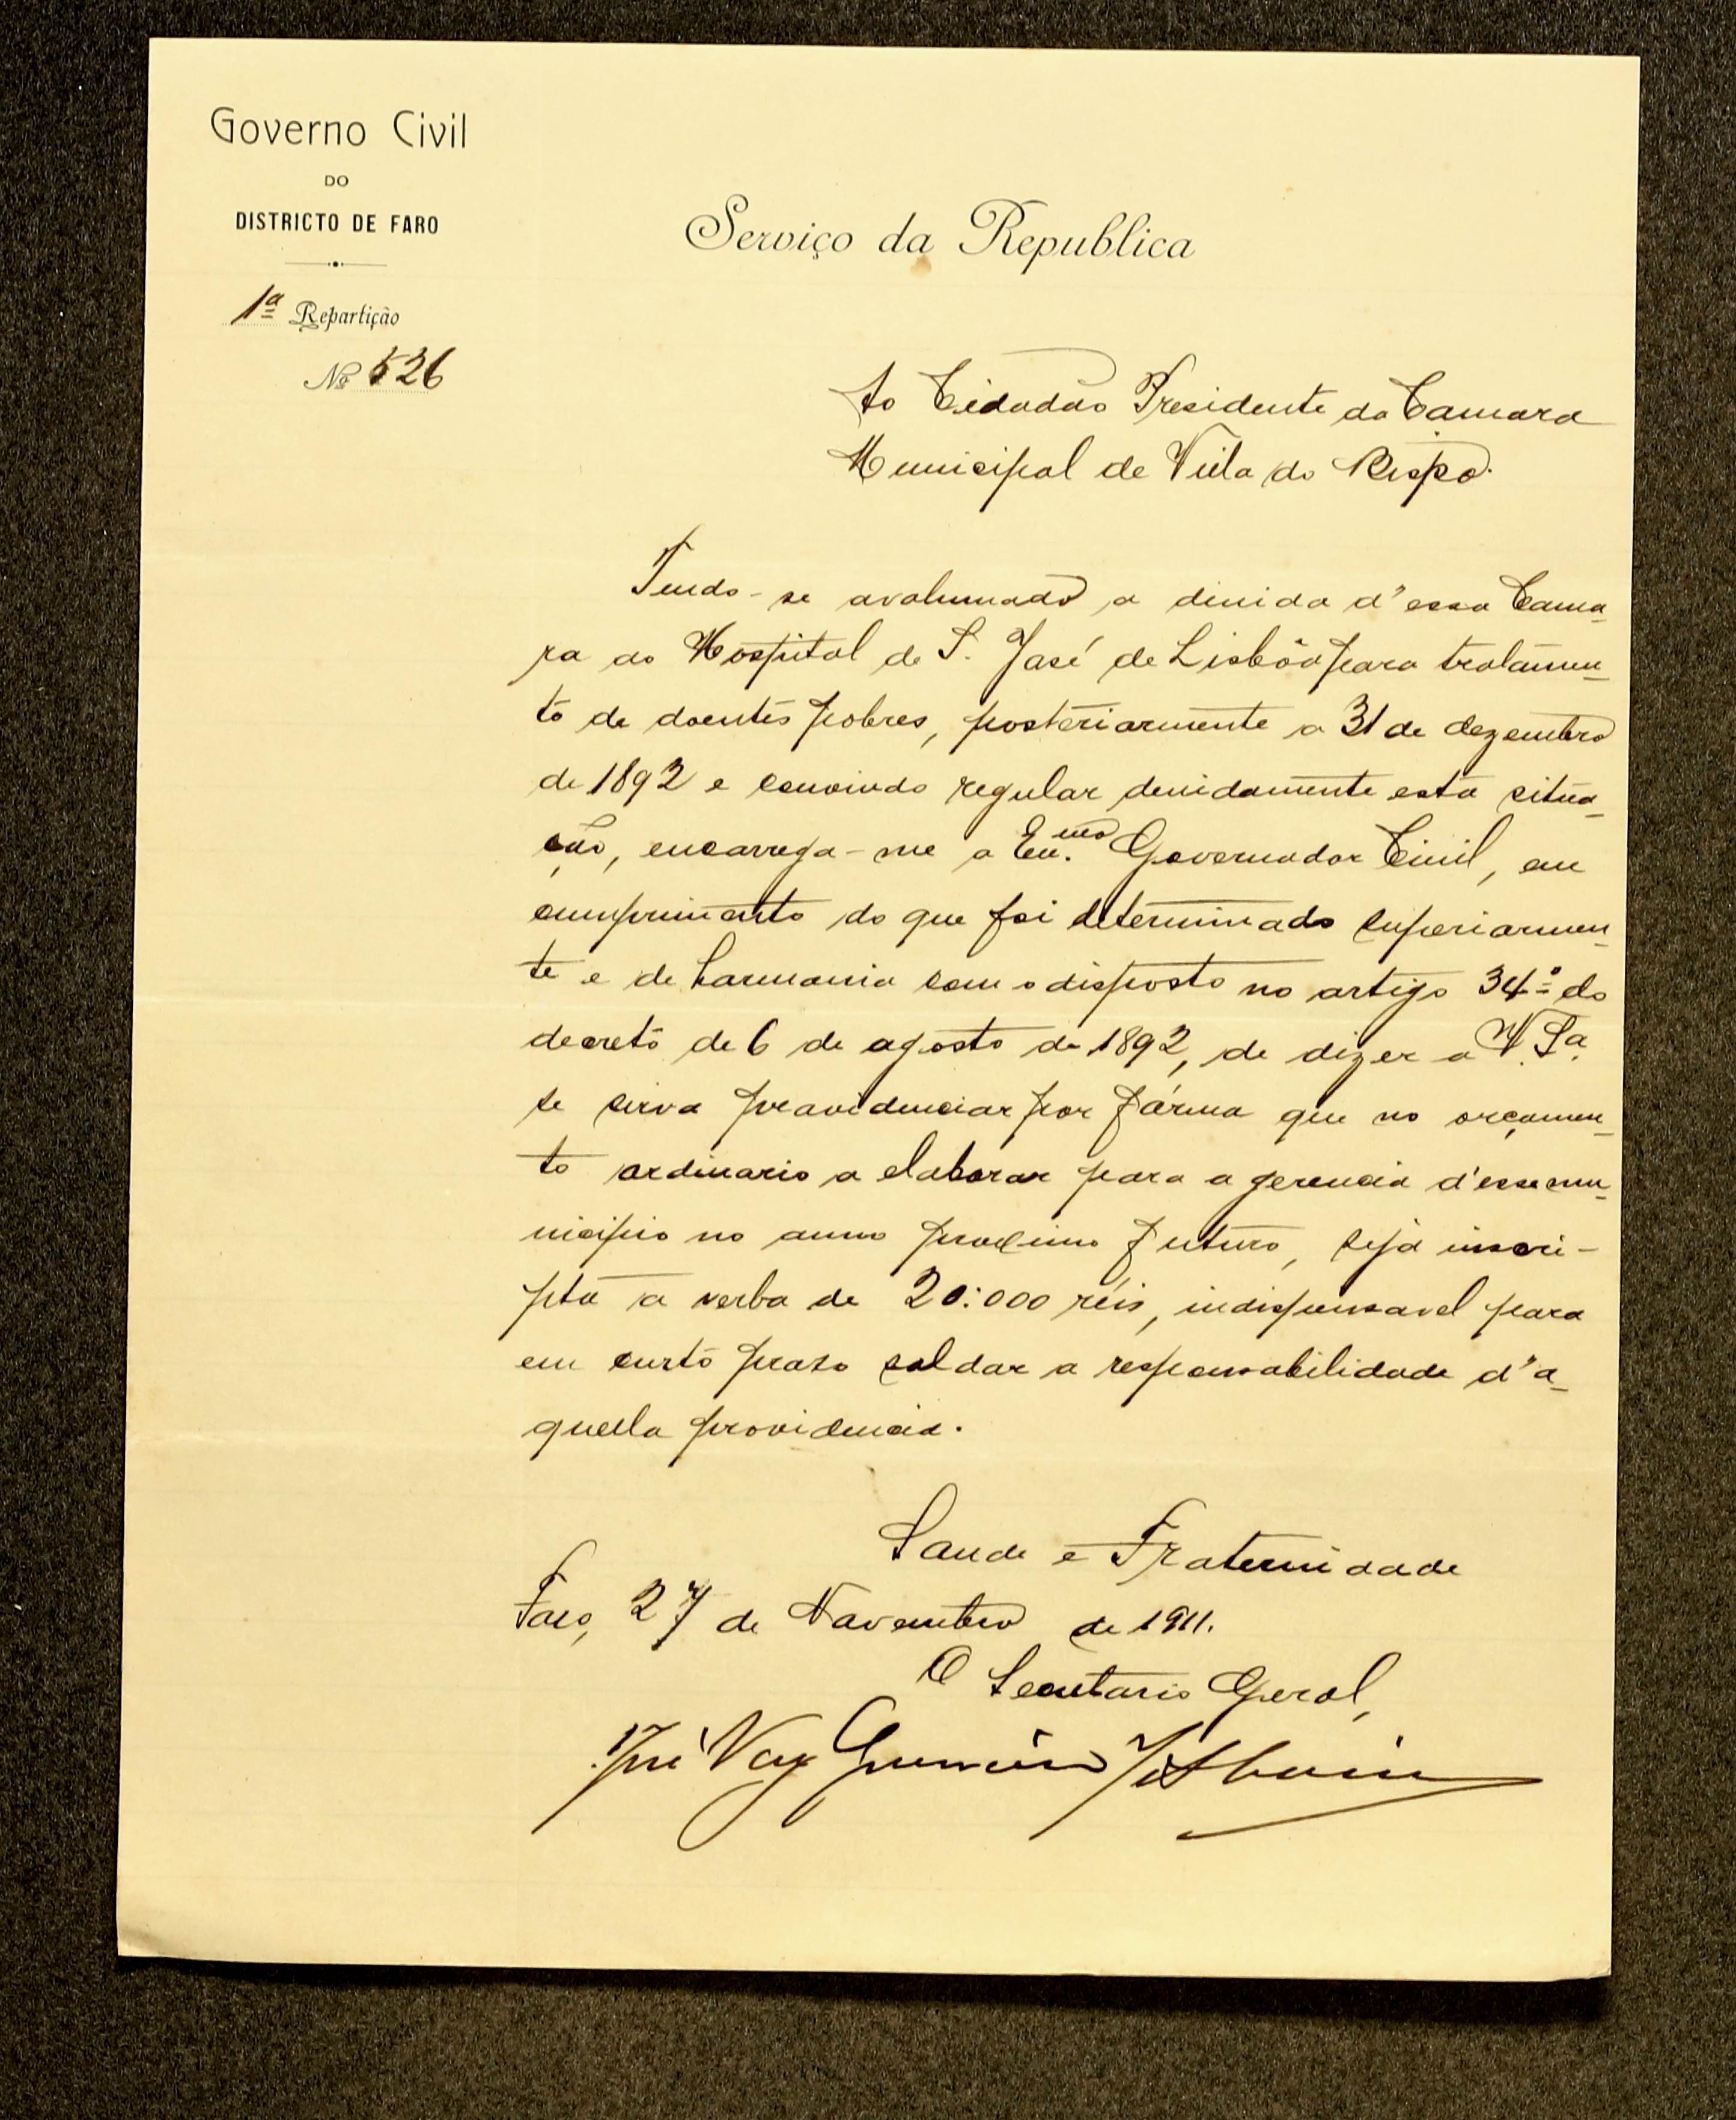 Governo Civil
DO
DISTRICTO DE FARO
1ª Repartição
Nº 526
Serviço da Republica
Ao Cidadão Presidente da Camara
Municipal de Villa do Bispo.
Tendo-se avolumado a divida d'essa Cama-
ra ao Hospital de S. José de Lisbôa para tratamen-
to de doentes pobres, posteriormente a 31 de dezembro
de 1892 e convindo regular devidamente esta situa-
ção, encarrega-me o Ex.mo Governador Civil, em
cumprimento do que foi determinado superiormen-
te e de harmonia com o disposto no artigo 34º do
decreto de 6 de agosto de 1892, de dizer a V. Sa.
se sirva providenciar por fórma que no orçamen-
to ordinario a elaborar para a gerencia d'esse mu-
nicipio no anno proximo futuro, seja inscri-
pta a verba de 20:000 réis, indispensavel para
em curto praso saldar a responsabilidade d'a-
quella providencia.
Saude e Fraternidade
Faro, 27 de Novembro de 1911.
O Secretario Geral,
José Vaz